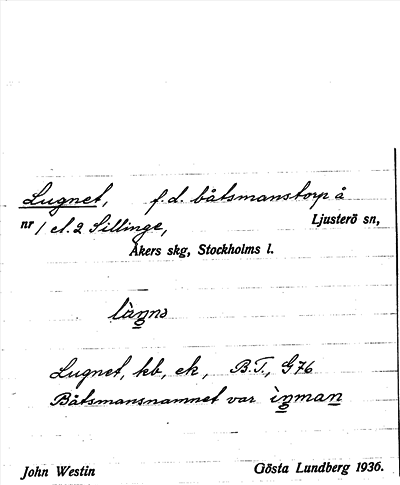 Lugnet, f. d. båtsmanstorp å
nr 1 el. 2 Sillinge, Ljusterö sn,
Åkers skg, Stockholms l.
Lugnet, kb, ek, B.T., G76
Båtsmansnamnet var
John Westin Gösta Lundberg 1936.